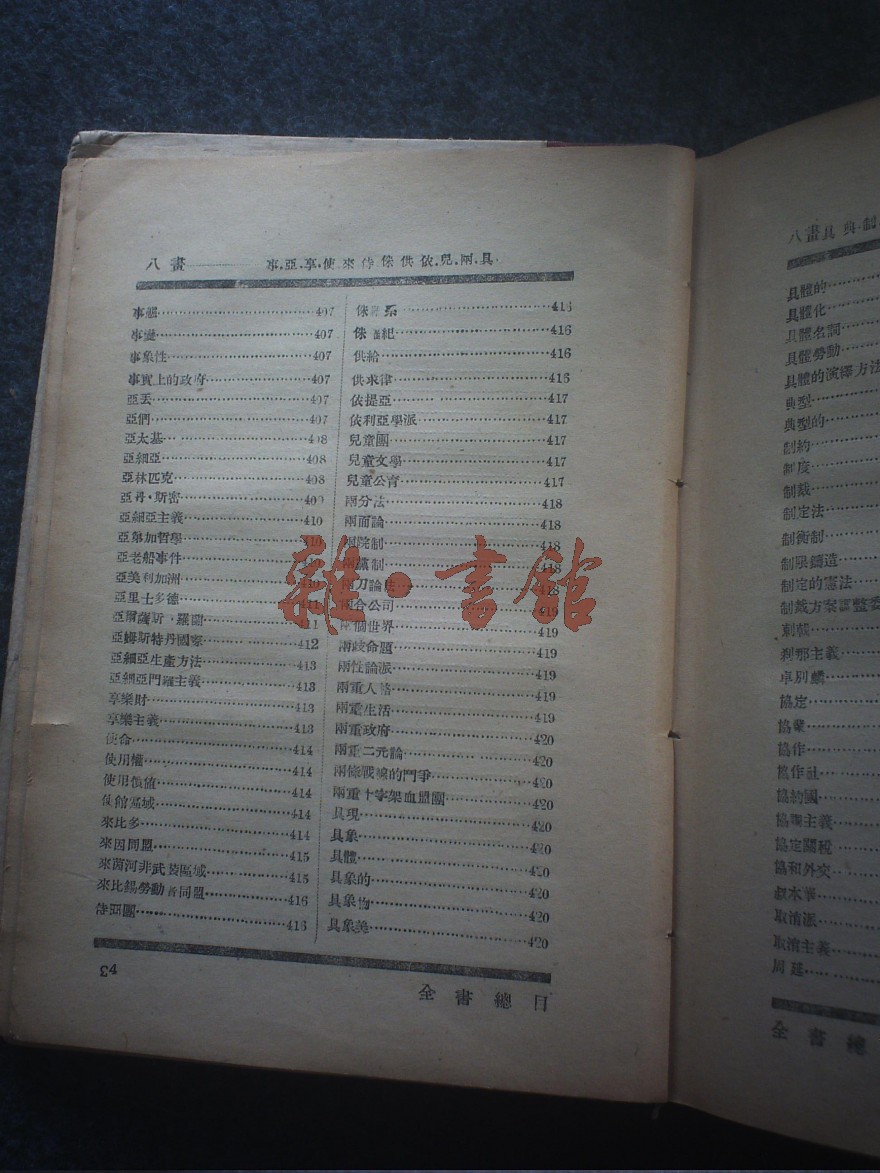 八畫 事.亞.享.使.來.侏供.依.兒.兩.具.
407
407
事象性 407
事實上的政府 407
亞丟 407
亞們 407
亞太基
亞細亞 408
亞林匹克 408
亞丹·斯密
亞細亞主義 410
亞弟加哲學 410
亞老船事件
亞美利加洲
亞里士多德 411
亞爾薩斯·羅蘭 411
亞姆斯特丹國際 412
亞細亞生產方法 413
亞細亞門羅主義 413
享樂財 413
享樂主義 413
使命 414
使用權 414
使用價值 414
使館區域 414
來比多 414
來因同盟 415
來茵河非武裝區域 415
來比錫勞動者同盟 416
416
侏羅系 415
侏羅紀 416
供給 416
供求律 416
依提亞 417
依利亞學派 417
兒童團 417
兒童文學 417
兒童公育 417
兩分法 418
兩面論 418
兩院制 418
兩黨制 418
兩刀論法
兩合公司 419
兩個世界 419
兩歧命題 419
兩性論派 419
兩重人格 419
兩重生活 419
兩重政府 420
兩重二元論 420
兩條戰線的鬥爭 420
兩重十字架血盟團 420
具現 420
具象 420
具體 420
具象的 420
具象物 420
具象美 420
34
全書總目
八畫具.典.制
具體的
具體化
具體名詞
具體勞動
具體的演繹方法
典型
典型的
制約
制度
制裁
制定法
制衡制
制限鑄造
制定的憲法
制裁方案調整委
刺戟
刹那主義
卓別麟
協定
協業
協作
協作社
協約國
協調主義
協定關稅
協和外交
叔本華
取消派
取消主義
周延
全書總
雜·書館